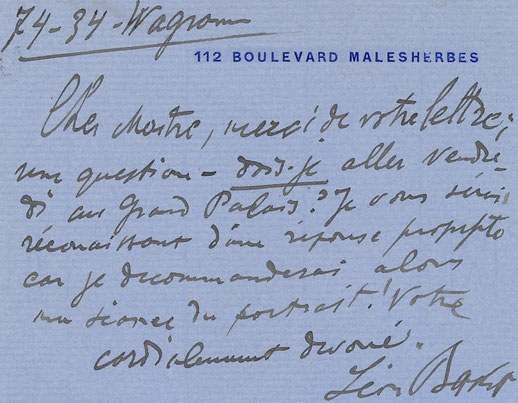 74-94-Wagram
112 BOULEVARD MALESHERBES
Cher Maitre, merci de votre lettre;
une question - dois-je aller vendre-
di au Grand Palais? Je vous serais
réconaissant d'une réponse prompte
car je decommanderai alors
ma seance du portrait! Votre
cordialement devoué.
Léon Bakst